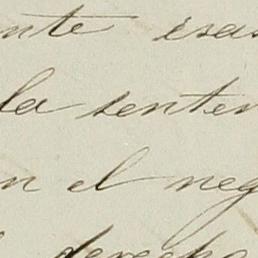 nte esas
la senten
n el neg
derecho